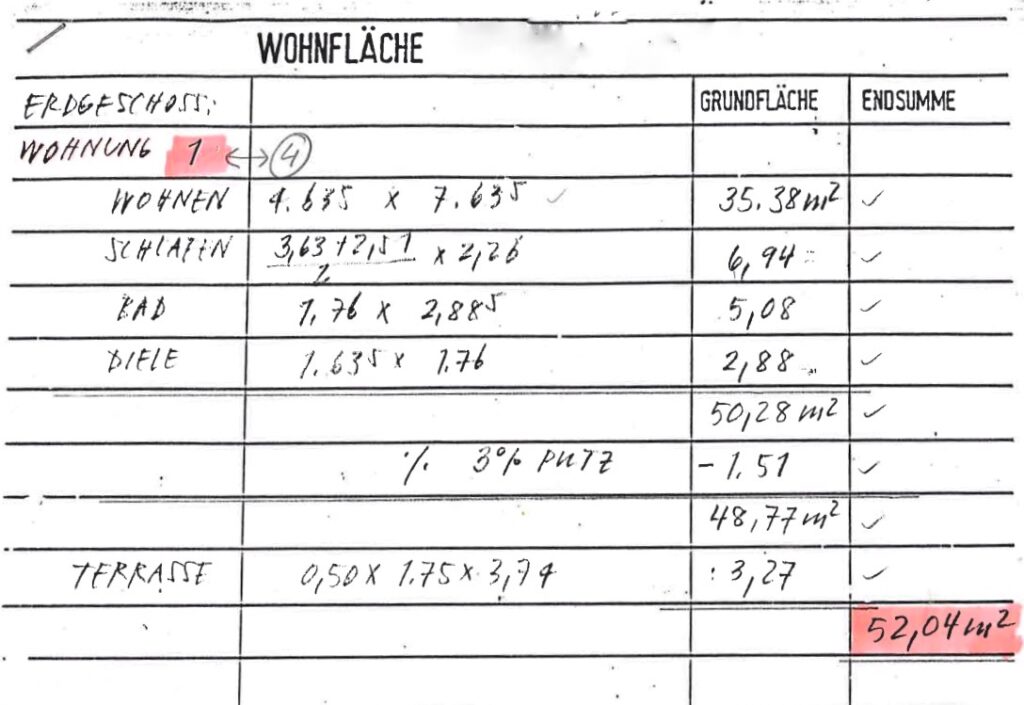 WOHNFLÄCHE
ERDGESCHOSS: GRUNDFLÄCHE ENDSUMME
WOHNUNG 1 ↔ 4
WOHNEN 4.635 x 7.635 ✓ 35.38m² ✓
SCHLAFEN (3,63+2,51)/2 x 2,26 6,94 ✓
BAD 1,76 x 2,885 5,08 ✓
DIELE 1.635 x 1.76 2,88 ✓
50,28m² ✓
·/. 3% PUTZ -1.51 ✓
48,77m² ✓
TERRASSE 0,50 x 1.75 x 3,74 3,27 ✓
52,04m²